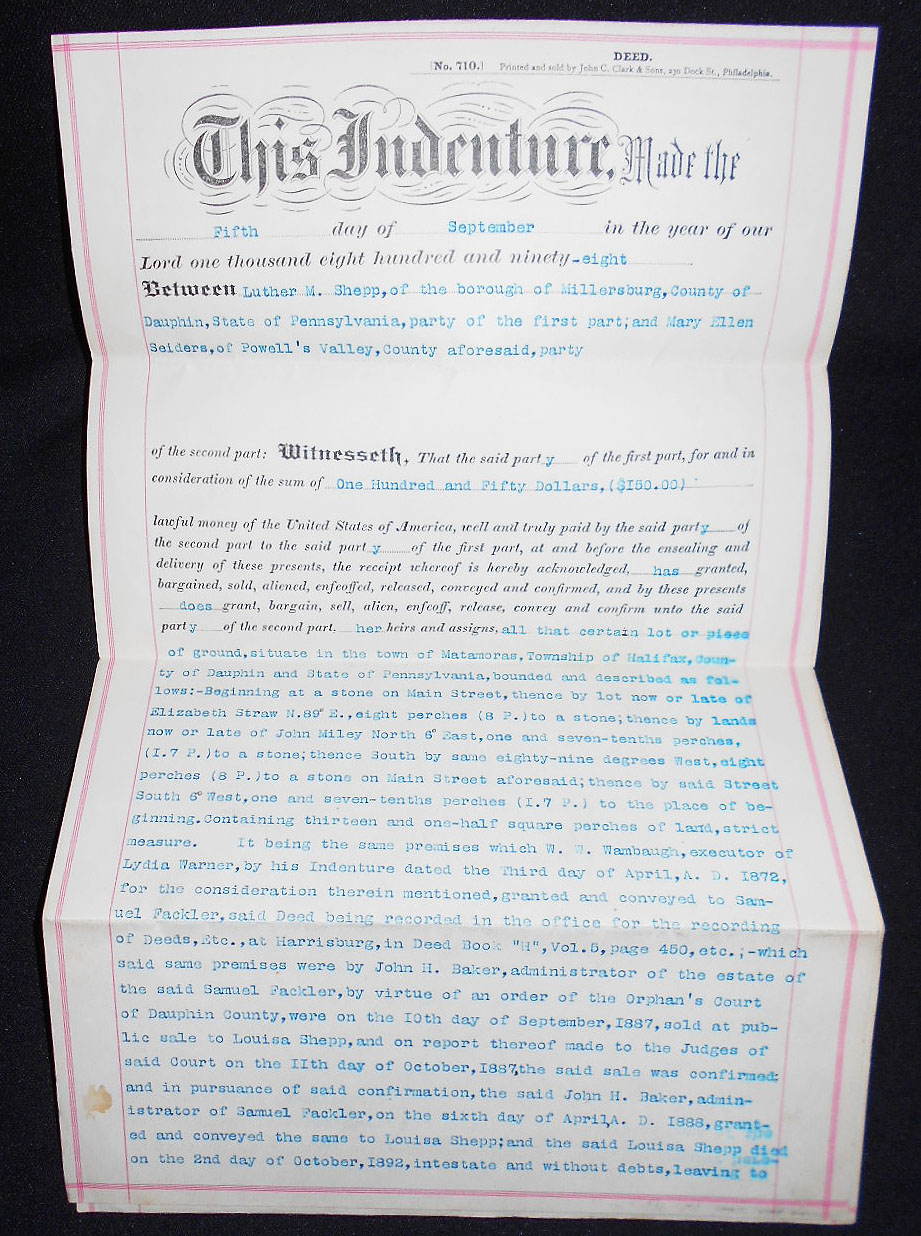 DEED.
[No. 710.] Printed and sold by John C. Clark & Sons, 230 Dock St., Philadelphia.
This Indenture, Made the
Fifth day of September in the year of our
Lord one thousand eight hundred and ninety-eight
Between Luther M. Shepp, of the borough of Millersburg, County of
Dauphin, State of Pennsylvania, party of the first part; and Mary Ellen
Seiders, of Powell's Valley, County aforesaid, party
of the second part: Witnesseth, That the said party of the first part, for and in
consideration of the sum of One Hundred and Fifty Dollars, ($I50.00)
lawful money of the United States of America, well and truly paid by the said party of
the second part to the said party of the first part, at and before the ensealing and
delivery of these presents, the receipt whereof is hereby acknowledged, has granted,
bargained, sold, aliened, enfeoffed, released, conveyed and confirmed, and by these presents
does grant, bargain, sell, alien, enfeoff, release, convey and confirm unto the said
party of the second part, her heirs and assigns, all that certain lot or piece
of ground, situate in the town of Matamoras, Township of Halifax, Coun-
ty of Dauphin and State of Pennsylvania, bounded and described as fol-
lows:-Beginning at a stone on Main Street, thence by lot now or late of
Elizabeth Straw N.89° E., eight perches (8 P.) to a stone; thence by lands
now or late of John Miley North 6° East, one and seven-tenths perches,
(I.7 P.) to a stone; thence South by same eighty-nine degrees West, eight
perches (8 P.) to a stone on Main Street aforesaid; thence by said Street
South 6° West, one and seven-tenths perches (I.7 P.) to the place of be-
ginning. Containing thirteen and one-half square perches of land, strict
measure. It being the same premises which W. W. Wambaugh, executor of
Lydia Warner, by his Indenture dated the Third day of April, A. D. I872,
for the consideration therein mentioned, granted and conveyed to Sam-
uel Fackler, said Deed being recorded in the office for the recording
of Deeds, Etc., at Harrisburg, in Deed Book "H", Vol.5, page 450, etc.;-which
said same premises were by John H. Baker, administrator of the estate of
the said Samuel Fackler, by virtue of an order of the Orphan's Court
of Dauphin County, were on the IOth day of September, I887, sold at pub-
lic sale to Louisa Shepp, and on report thereof made to the Judges of
said Court on the IIth day of October, I887, the said sale was confirmed;
and in pursuance of said confirmation, the said John H. Baker, admin-
istrator of Samuel Fackler, on the sixth day of April, A. D. I888, grant-
ed and conveyed the same to Louisa Shepp; and the said Louisa Shepp died
on the 2nd day of October, I892, intestate and without debts, leaving to